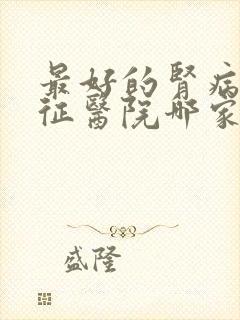 最好的腎病
征醫院哪家
盛隆